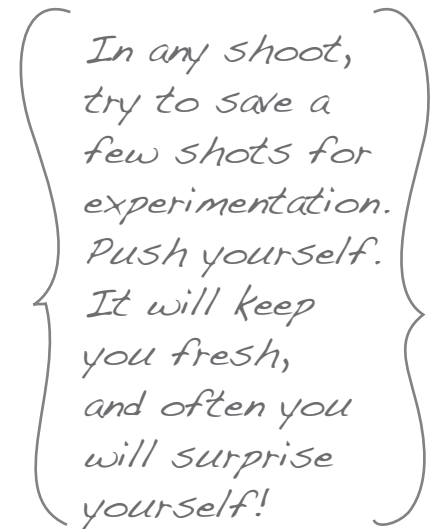 In any shoot,
try to save a
few shots for
experimentation.
Push yourself.
It will keep
you fresh,
and often you
will surprise
yourself!